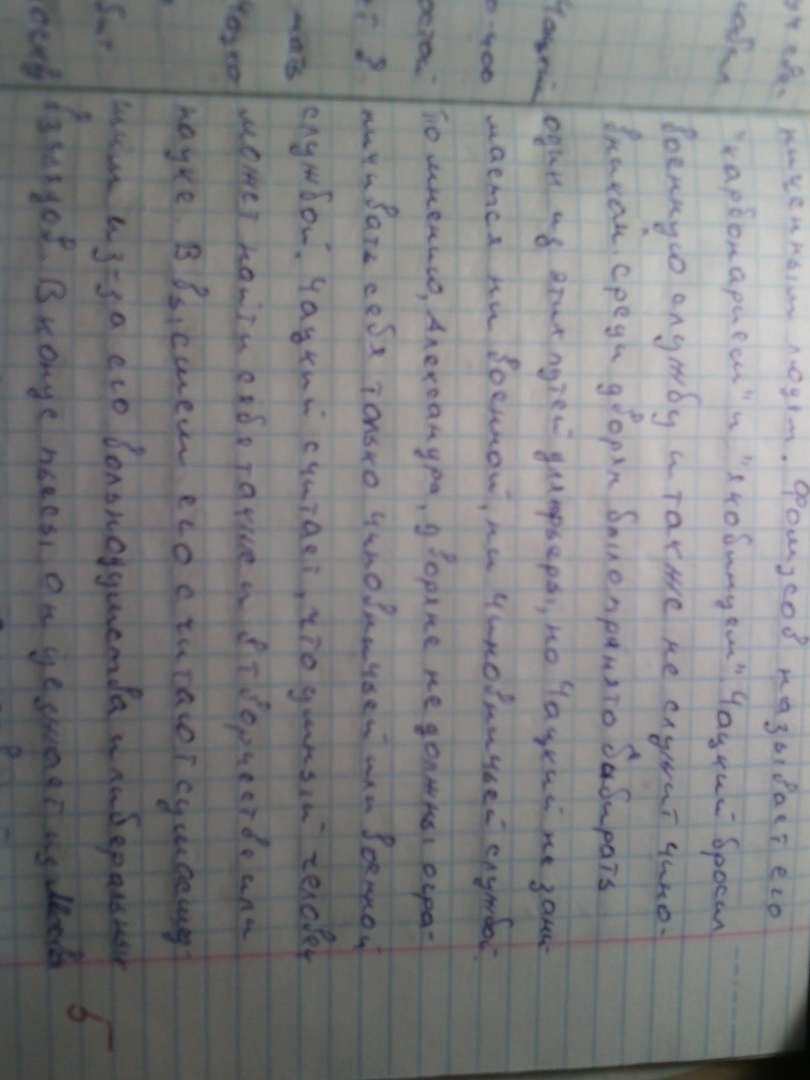 ниченным людям. Фамусов называет его
"карбонарием" и "якобинцем" Чацкий бросил
военную службу и также не служит чино-
вником. Среди дворян было принято выбирать
один из этих путей для карьеры, но Чацкий не зани-
мается ни военной, ни чиновничьей службой.
По мнению, Александра, дворяне не должны огра-
ничивать себя только чиновничьей или военной
службой. Чацкий считает, что умный человек
может найти себя также и в творчестве или
науке. В высшем его считают сумасшед-
шим из-за его вольнодумства и либеральных
взглядов. В конце пьесы он уезжает из Москвы
5
Чацкий